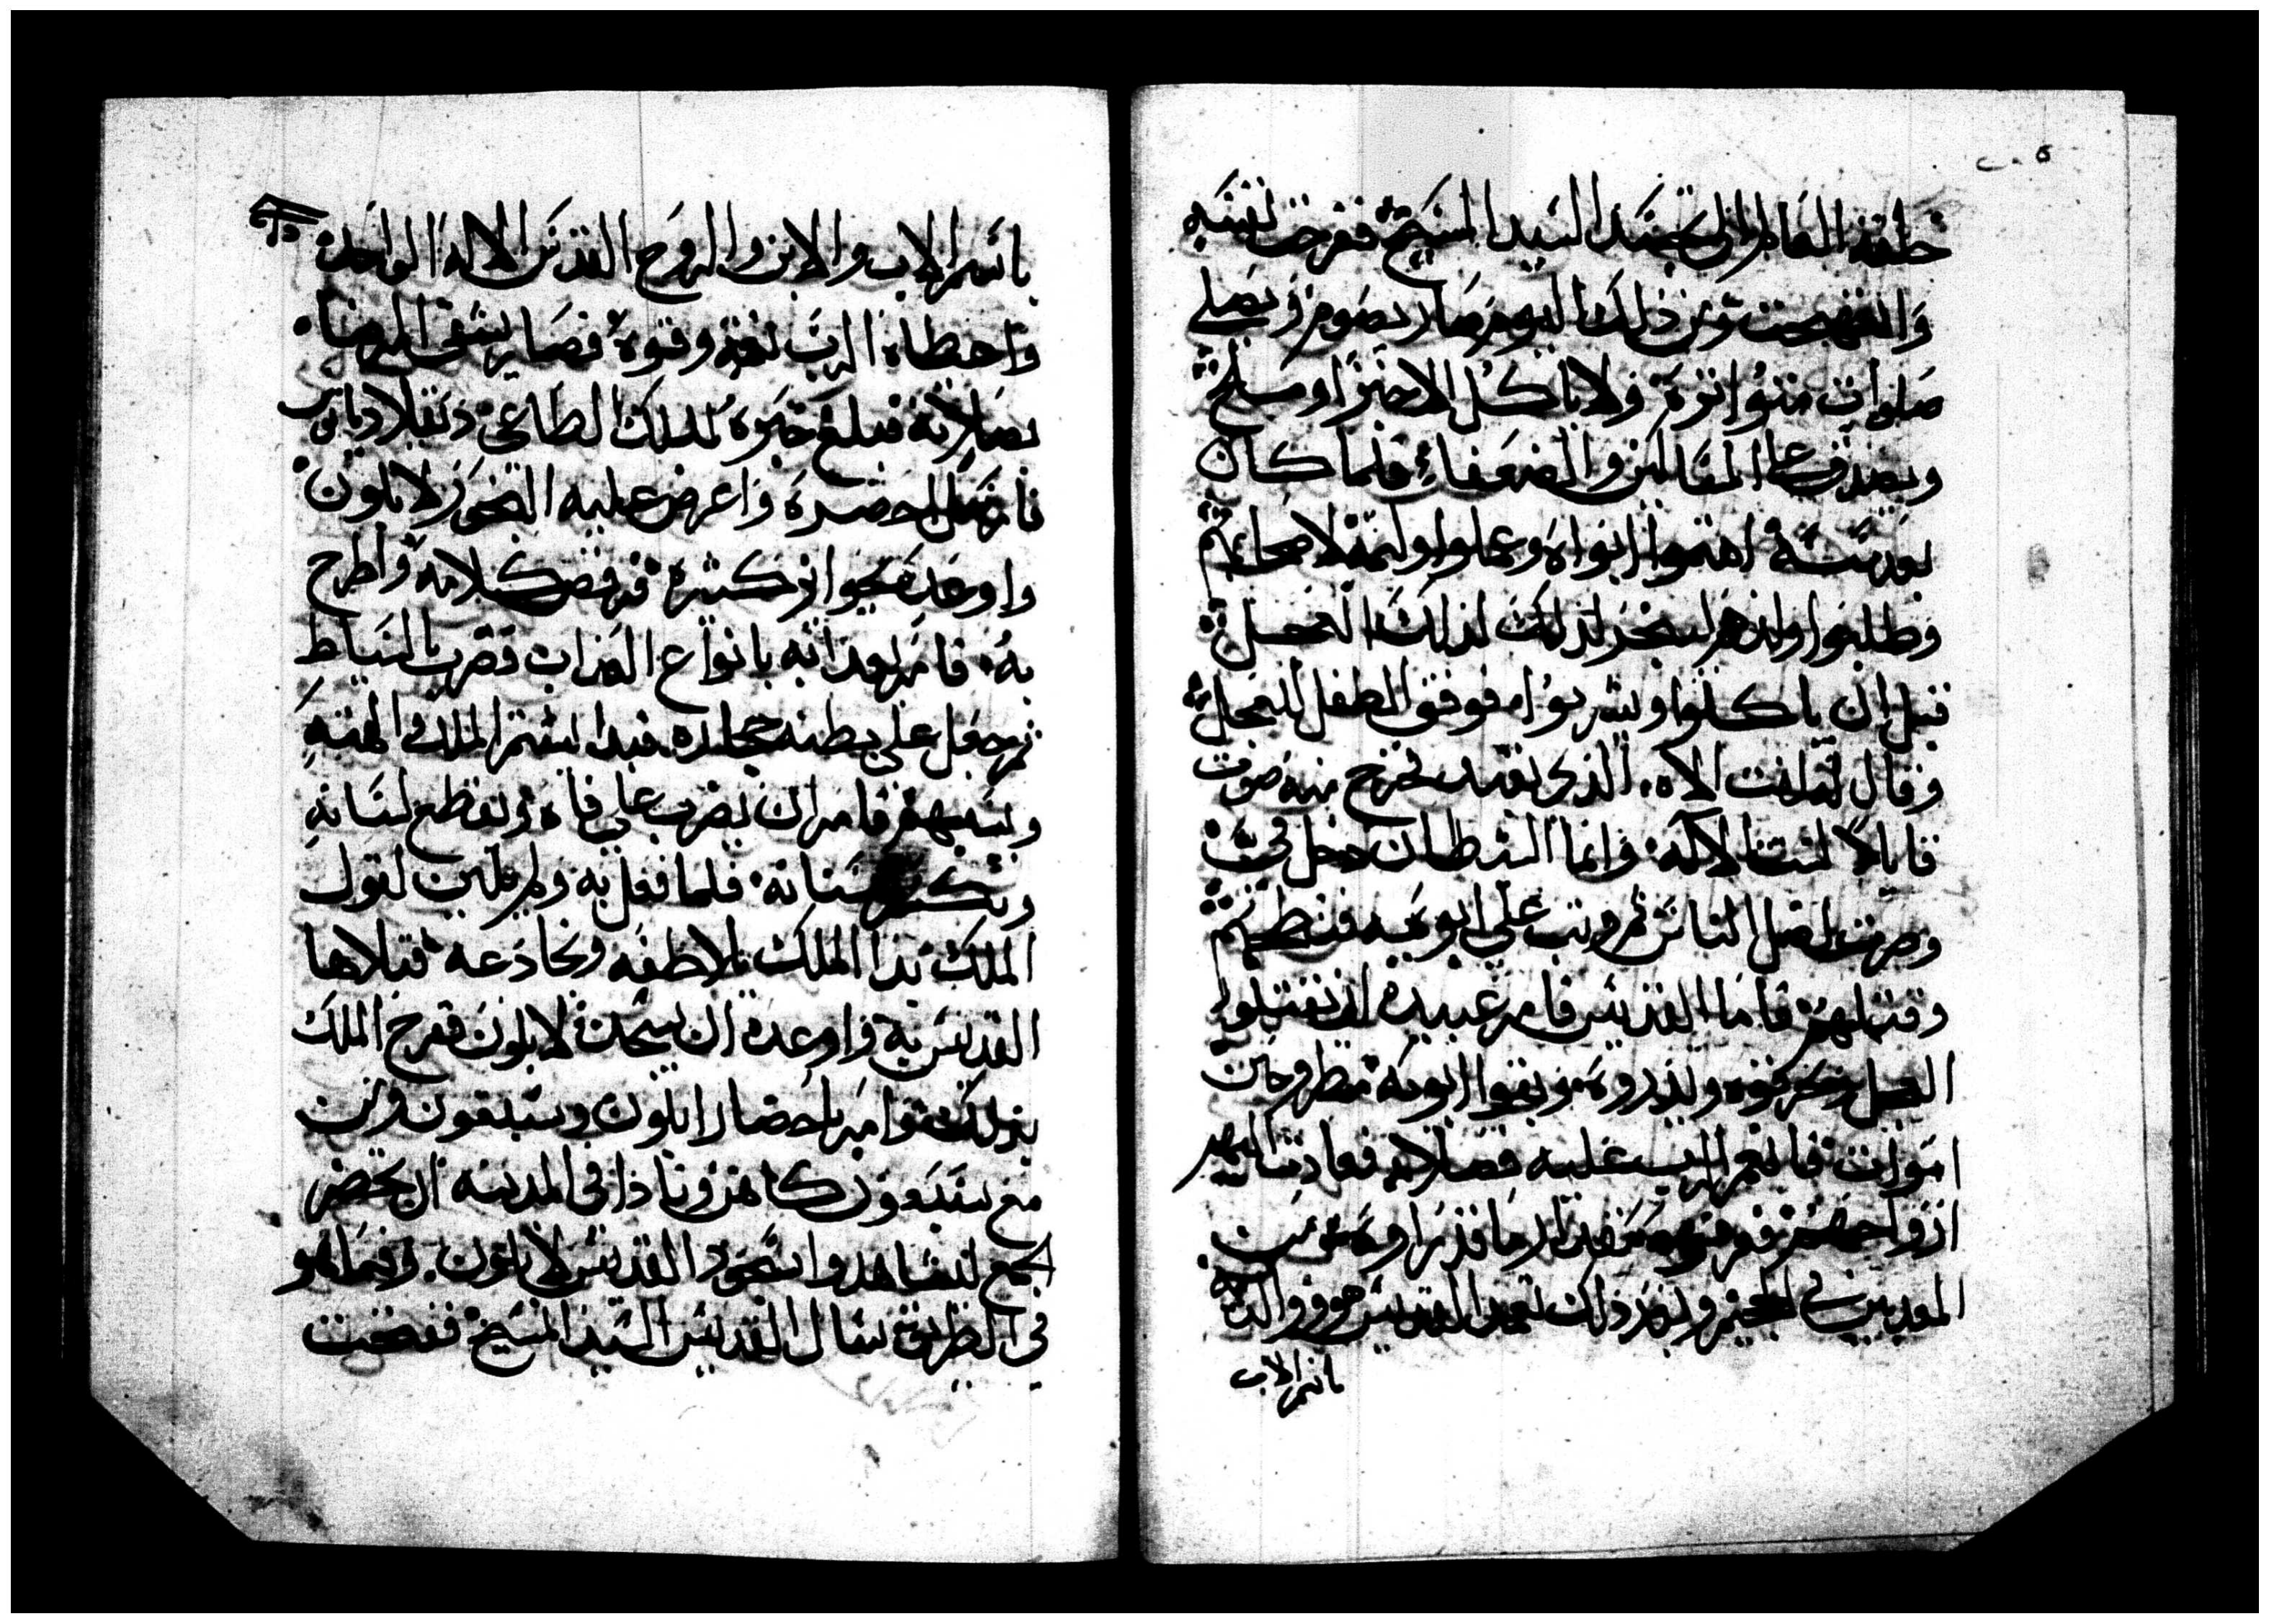 خلقة العالم الى تجسد السيد المسيح ففرحت نفسه
وابتهجت ومن ذلك اليوم صار يصوم ويصلي
صلوات متواترة ولا ياكل الا خبزا وملح
ويصدق على المساكين والضعفاء فلما كان
بعد سنة اهتموا ابواه وعملوا وليمة لاصحابهم
وطلبوا ولدهم ليسجد لذلك العجل
قبل ان ياكلوا ويشربوا فوقف الطفل للعجل
وقال له انت الاه الذي تعبد فخرج منه صوت
قايلا لست الاله وانما الشيطان دخل في
وصرت اضل الناس ثم وثب على ابويه فنطحهم
وقتلهم فاما القديس فامر عبيده ان يقتلوا
العجل ويحرقوه ويذروه وبقوا ابويه مطروحين
اموات فانعم الرب عليه بصلاته فعادت اليهم
ارواحهم فعرفوه بعد ما قد راوه من
المعذبين في الجحيم وبعد ذلك تعمد القديس هو ووالديه
باسم الاب
باسم الاب والابن والروح القدس الاله الواحد
واعطاه الرب نعمة وقوة فصار يشفي المرضا
بصلاته فبلغ خبره للملك الطاغي دقلاديانوس
فارسل احضره واعرض عليه السجود لابلون
واوعده بجوايز كثيرة فرفض كلامه واطرح
به فامر بعذابه بانواع العذاب فضرب بالسياط
ثم جعل على بطنه حجارة فبدا يشتم الملك والهته
ويسبهم فامر ان يضرب على فاه ويقطع لسانه
ويكسر اسنانه فلما فعل به ولم يلين لقول
الملك بدا الملك يلاطفه ويخادعه فتلاها
القديس به واوعده ان يسجد لابلون ففرح الملك
بذلك وامر باحضار ابلون وسبعون وثن
مع سبعون كاهن ونادا في المدينة ان يحضر
الجمع ليشاهدوا سجود القديس لابلون وفيما هو
في الطريق سال القديس السيد المسيح ففتحت